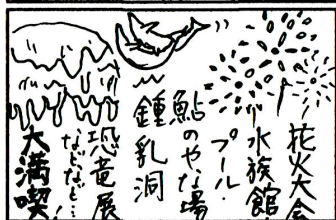 花火大会
水族館
プール
鮎のやな場
鍾乳洞
恐竜展
などなど…
大満喫